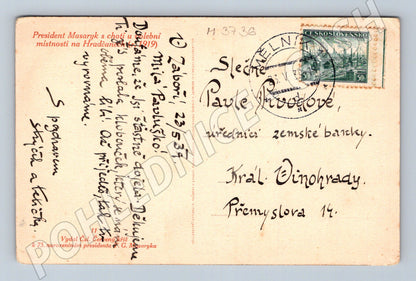 President Masaryk s chotí u volební
místnosti na Hradčanech (1919)
V Záboří, 23/5 37
Milá Pavluško.
Doufáme, že jsi šťastně dojela. Děkujeme
Ti
klobouček, který se
líbí. Až přijedeš tak
vyrovnáme.
S pozdravem
strýček a tetička
11
Vydal Čsl. Červený kříž
k 75. narozeninám presidenta T. G. Masaryka
M 3736
MĚLNÍK
ČESKOSLOVENSKO
50
Slečna
Pavle
úřednici zemské banky.
Král. Vinohrady.
Přemyslova 14.
POHLEDNICE